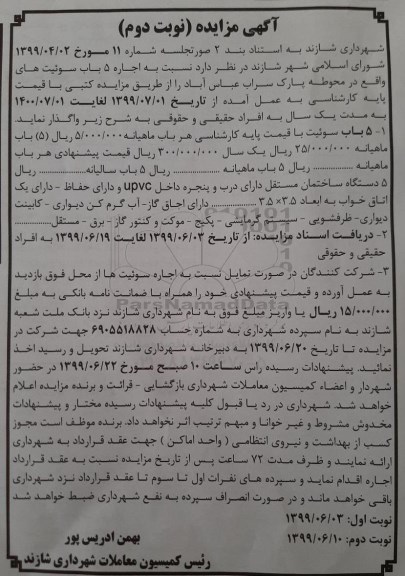 آگهی مزایده (نوبت دوم)
شهرداری شازند به استناد بند ۲ صورتجلسه شماره ۱۱ مورخ ۱۳۹۹/۰۴/۰۲
شورای اسلامی شهر شازند در نظر دارد نسبت به اجاره ۵ باب سوئیت های
واقع در محوطه پارک سراب عباس آباد را از طریق مزایده کتبی با قیمت
پایه کارشناسی به عمل آمده از تاریخ ۱۳۹۹/۰۷/۰۱ لغایت ۱۴۰۰/۰۷/۰۱
به مدت یک سال به افراد حقیقی و حقوقی به شرح زیر واگذار نماید.
۱- ۵ باب سوئیت با قیمت پایه کارشناسی هر باب ماهیانه ۵/۰۰۰/۰۰۰ ریال (۵) باب
ماهیانه ۲۵/۰۰۰/۰۰۰ ریال یک سال ۳۰۰/۰۰۰/۰۰۰ ریال قیمت پیشنهادی هر باب
ماهیانه .................. ریال ۵ باب ماهیانه .................. ریال ۵ باب سالیانه.................. ریال
۵ دستگاه ساختمان مستقل دارای درب و پنجره داخل upvc و دارای حفاظ - دارای یک
اتاق خواب به ابعاد ۳.۵× ۳.۵ .................. دارای اجاق گاز- آب گرم کن دیواری - کابینت
دیواری- ظرفشویی - سیستم گرمایشی - پکیج - موکت و کنتور گاز - برق - مستقل..................
۲- دریافت اسناد مزایده: از تاریخ ۱۳۹۹/۰۶/۰۳ لغایت ۱۳۹۹/۰۶/۱۹ به افراد
حقیقی و حقوقی
۳- شرکت کنندگان در صورت تمایل نسبت به اجاره سوئیت ها از محل فوق بازدید
به عمل آورده و قیمت پیشنهادی خود را همراه با ضمانت نامه بانکی به مبلغ
۱۵/۰۰۰/۰۰۰ ریال یا واریز مبلغ فوق به نام شهرداری شازند نزد بانک ملت شعبه
شازند به نام سپرده شهرداری به شماره حساب ۶۹۰۵۵۱۸۸۲۸ جهت شرکت در
مزایده تا تاریخ ۱۳۹۹/۰۶/۲۰ به دبیرخانه شهرداری شازند تحویل و رسید اخذ
نمائید. پیشنهادات رسیده راس ساعت ۱۰ صبح مورخ ۱۳۹۹/۰۶/۲۲ در حضور
شهردار و اعضاء کمیسیون معاملات شهرداری بازگشایی - قرائت و برنده مزایده اعلام
خواهد شد. شهرداری در رد یا قبول کلیه پیشنهادات رسیده مختار و پیشنهادات
مخدوش مشروط و غیر خوانا و مبهم ترتیب اثر نخواهد داد. برنده موظف است مجوز
کسب از بهداشت و نیروی انتظامی ( واحد اماکن ) جهت عقد قرارداد به شهرداری
ارائه نمایند و ظرف مدت ۷۲ ساعت پس از تاریخ مزایده نسبت به عقد قرارداد
اجاره اقدام نماید و سپرده های نفرات اول تا سوم تا عقد قرارداد نزد شهرداری
باقی خواهد ماند و در صورت انصراف سپرده به نفع شهرداری ضبط خواهد شد
نوبت اول: ۱۳۹۹/۰۶/۰۳
نوبت دوم: ۱۳۹۹/۰۶/۱۰
بهمن ادریس پور
رئیس کمیسیون معاملات شهرداری شازند
ParsNamadData